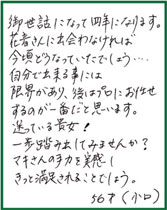 御世話になって四年になります。
花音さんに出会わなければ
今頃どうなっていたでしょう…
自分で出来る事には
限界があり、後はプロにお任せ
するのが一番だと思います。
迷っている貴女!
一歩踏み出してみませんか?
マキさんの手力を実感し
きっと満足されることでしょう。
56才 (小口)